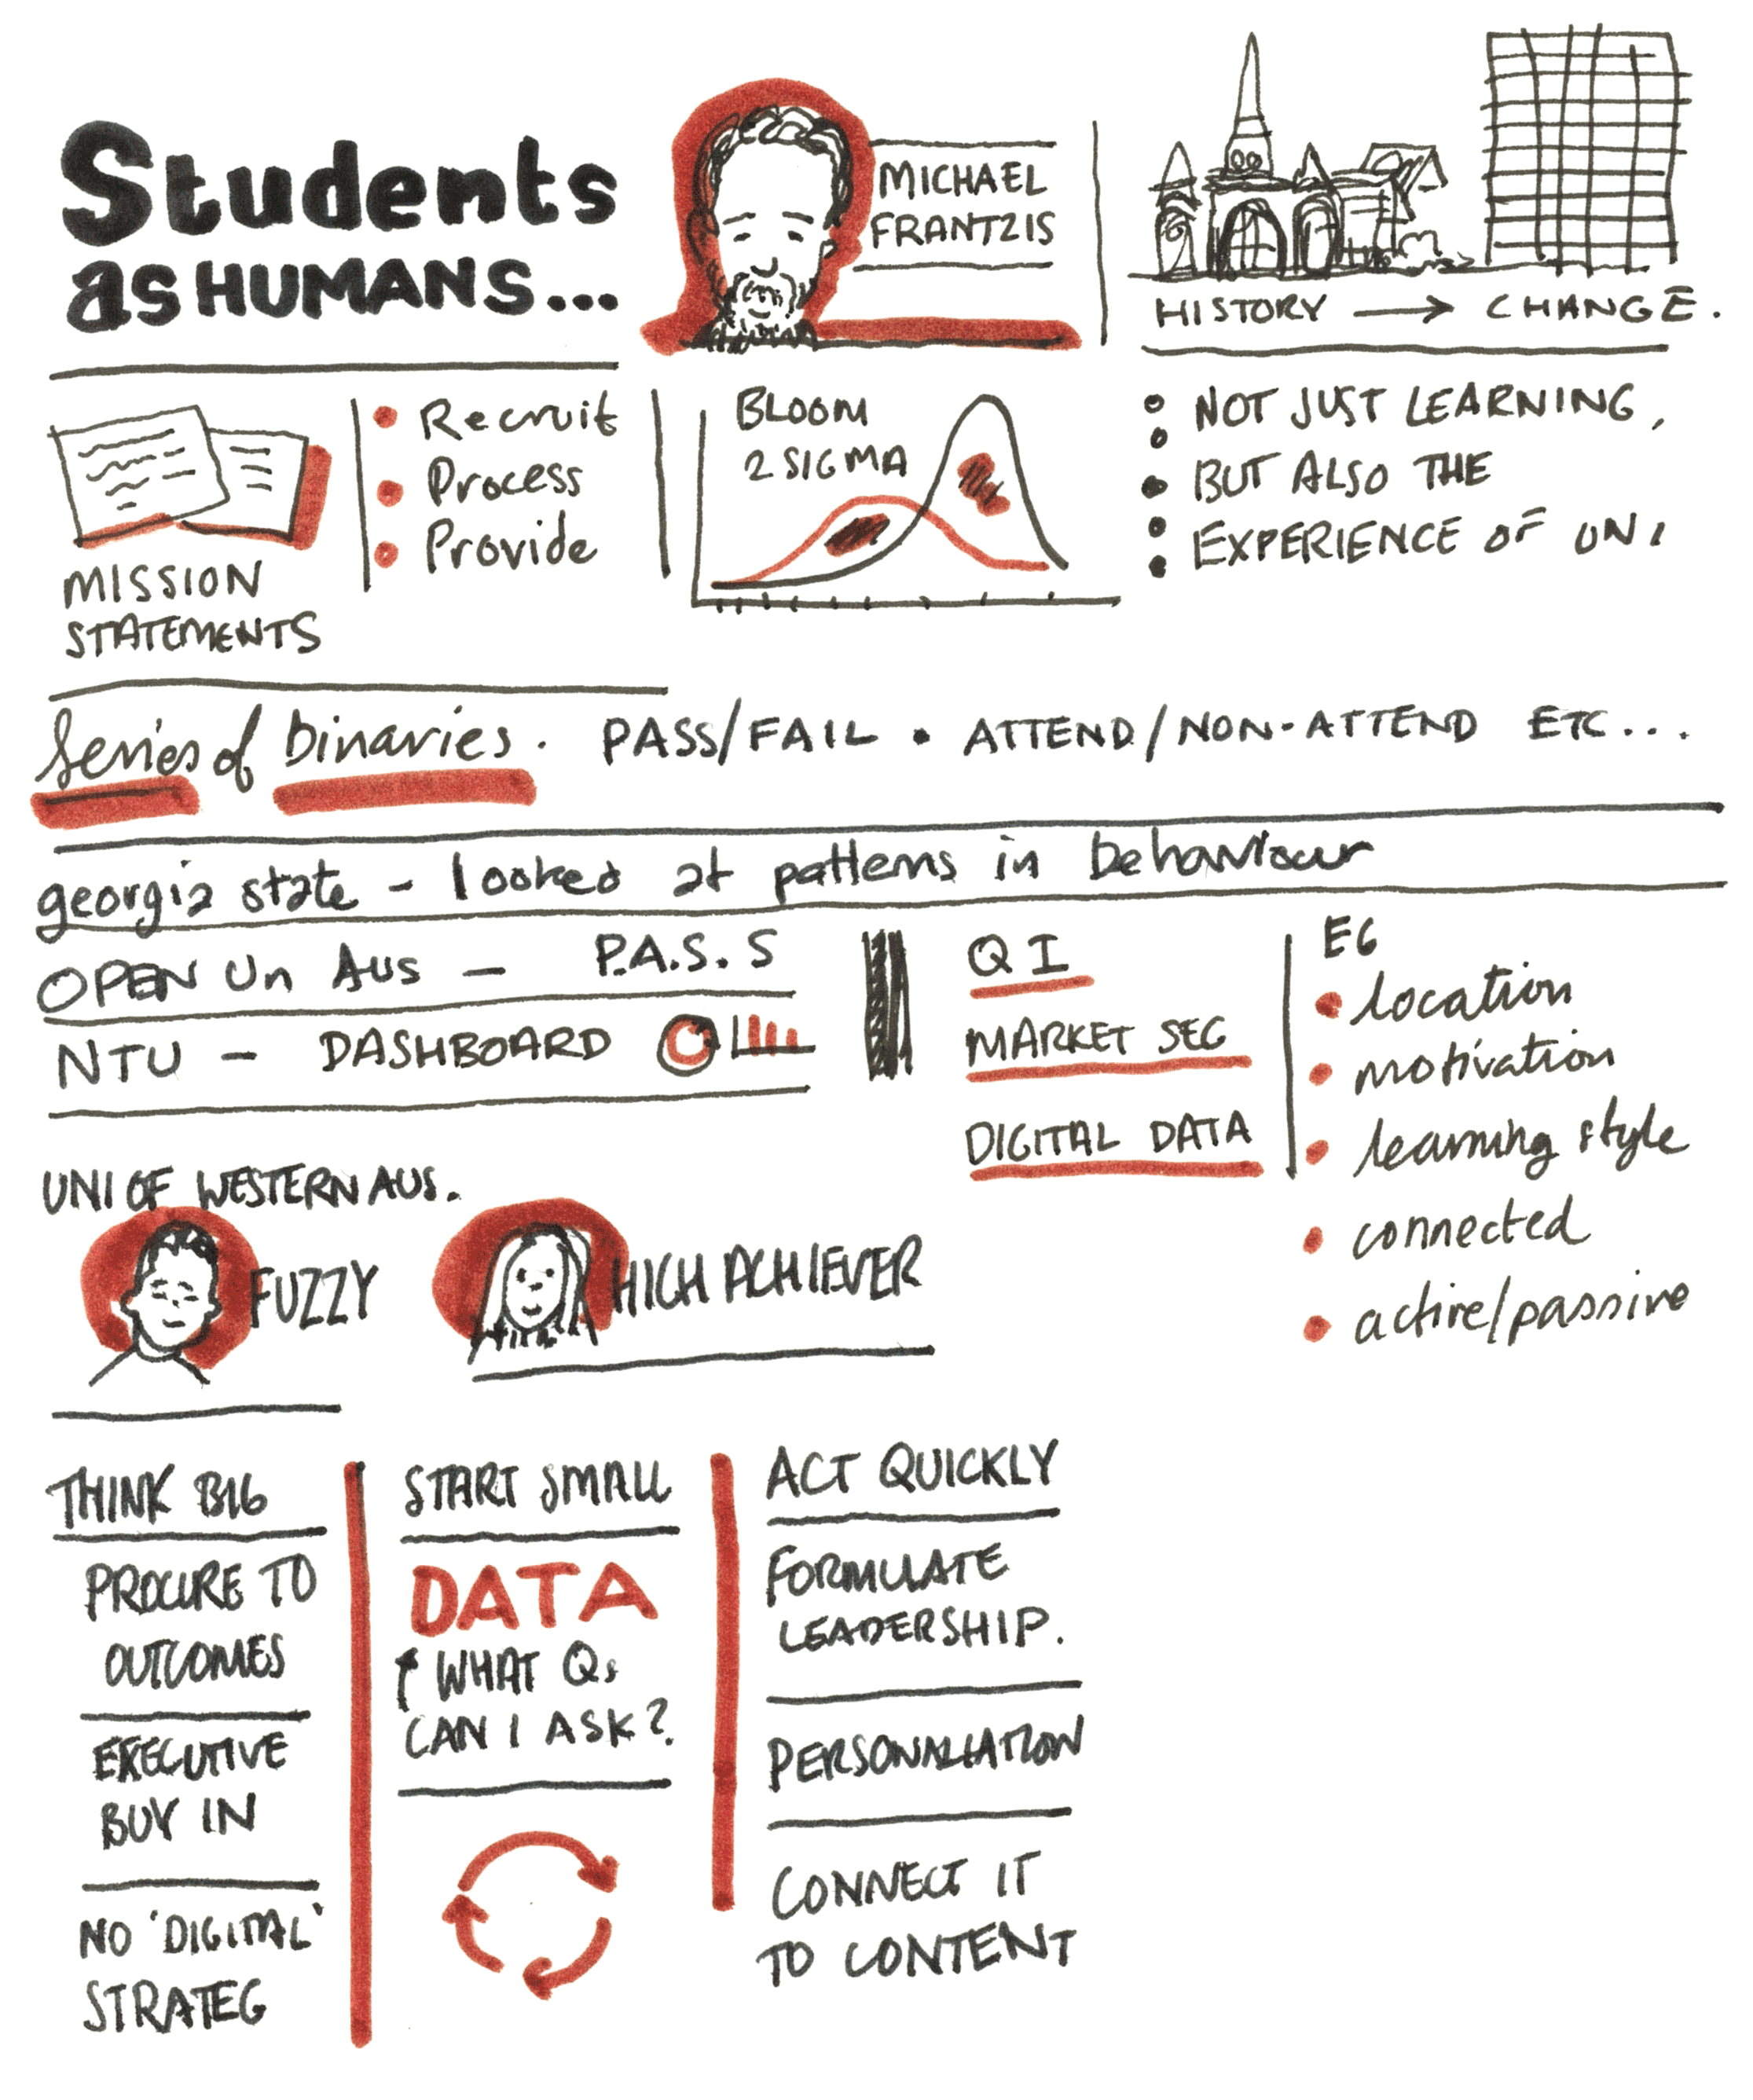 Students
as HUMANS...
MICHAEL
FRANTZIS
HISTORY → CHANGE.
MISSION
STATEMENTS
• Recruit
• Process
• Provide
BLOOM
2 SIGMA
NOT JUST LEARNING,
BUT ALSO THE
EXPERIENCE OF UNI
Series of binaries. PASS/FAIL • ATTEND/NON-ATTEND ETC...
georgia state - looked at patterns in behaviour
OPEN Un Aus - P.A.S.S
NTU - DASHBOARD
QI
MARKET SEG
DIGITAL DATA
EG
• location
• motivation
• learning style
• connected
• active/passive
UNI OF WESTERN AUS.
FUZZY
HIGH ACHIEVER
THINK BIG
PROCURE TO
OUTCOMES
EXECUTIVE
BUY IN
NO 'DIGITAL'
STRATEG
START SMALL
DATA
↑ WHAT Qs
CAN I ASK?
ACT QUICKLY
FORMULATE
LEADERSHIP.
CONNECT IT
TO CONTENT